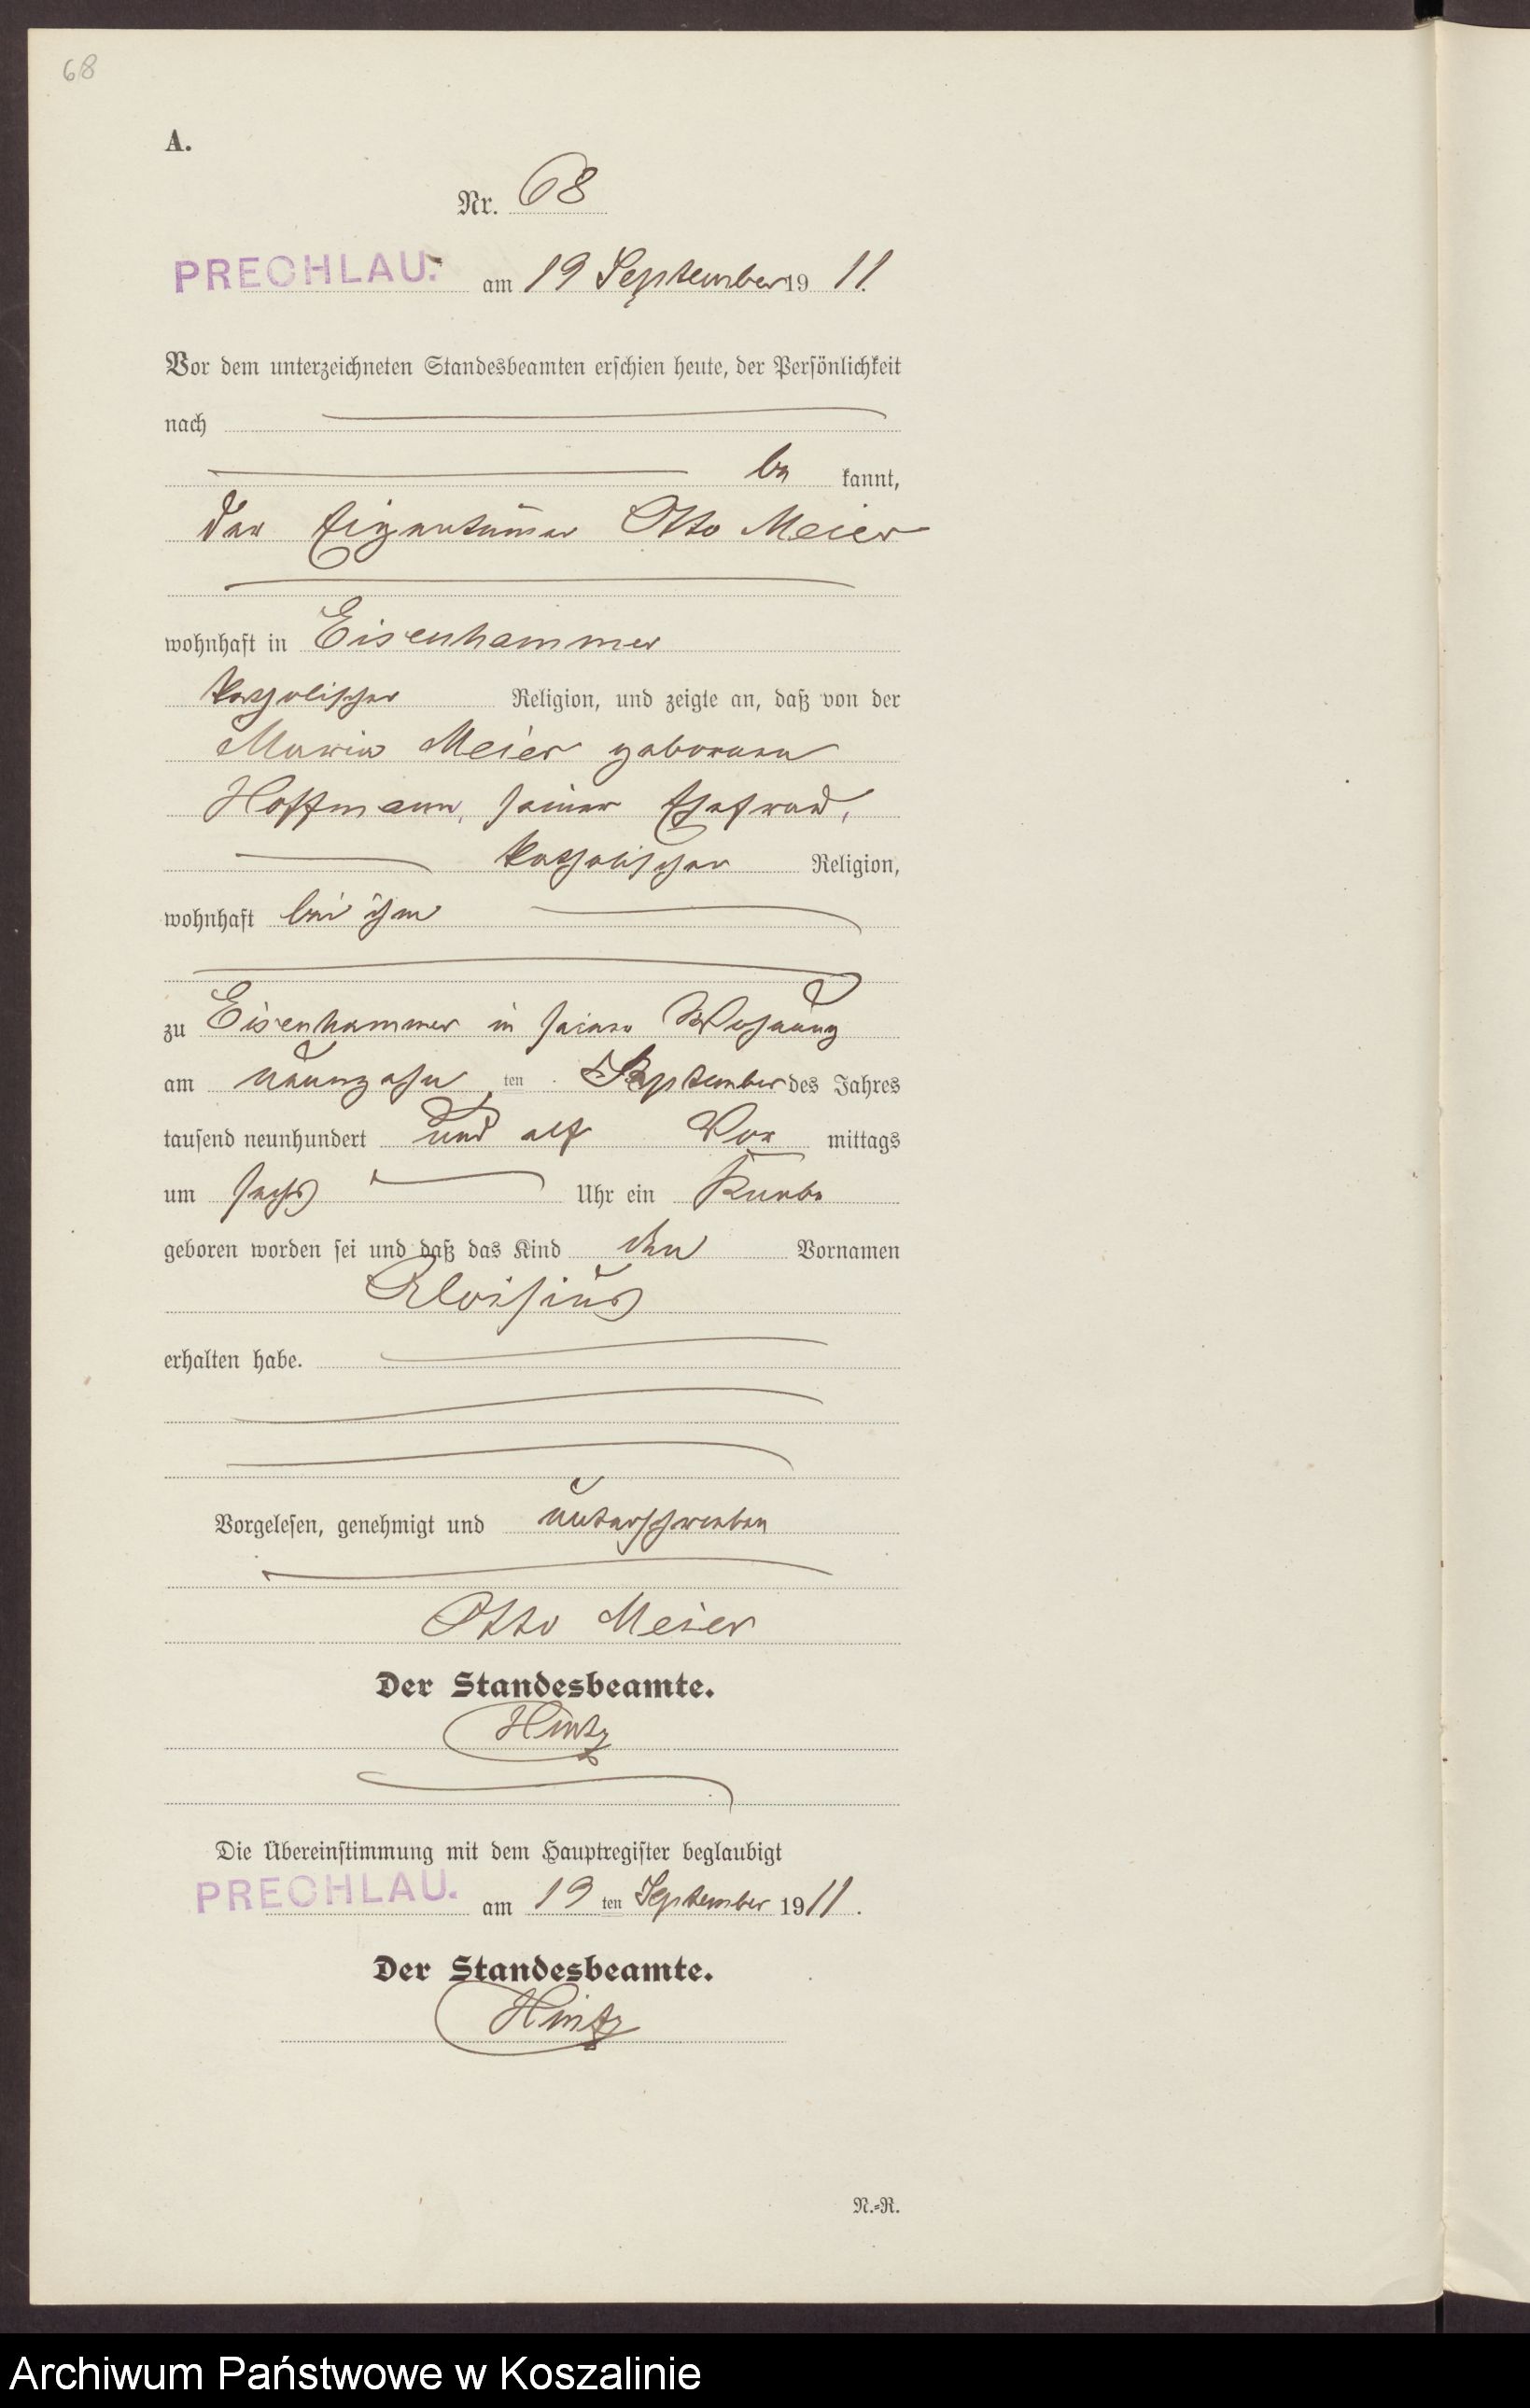 68
A.
Nr. 68
PRECHLAU. am 19 September 1911.
Vor dem unterzeichneten Standesbeamten erschien heute, der Persönlichkeit
nach
be kannt,
der Eigentümer Otto Meier
wohnhaft in Eisenhammer
katholischer Religion, und zeigte an, daß von der
Maria Meier geborenen
Hoffmann, seiner Ehefrau,
katholischer Religion,
wohnhaft bei ihm
zu Eisenhammer in seiner Wohnung
am neunzehn ten September des Jahres
tausend neunhundert und elf Vor mittags
um sechs Uhr ein Knabe
geboren worden sei und daß das Kind den Vornamen
Aloisius
erhalten habe.
Vorgelesen, genehmigt und unterschrieben
Otto Meier
Der Standesbeamte.
Hintz
Die Übereinstimmung mit dem Hauptregister beglaubigt
PRECHLAU. am 19 ten September 1911.
Der Standesbeamte.
Hintz
N.=R.
Archiwum Państwowe w Koszalinie